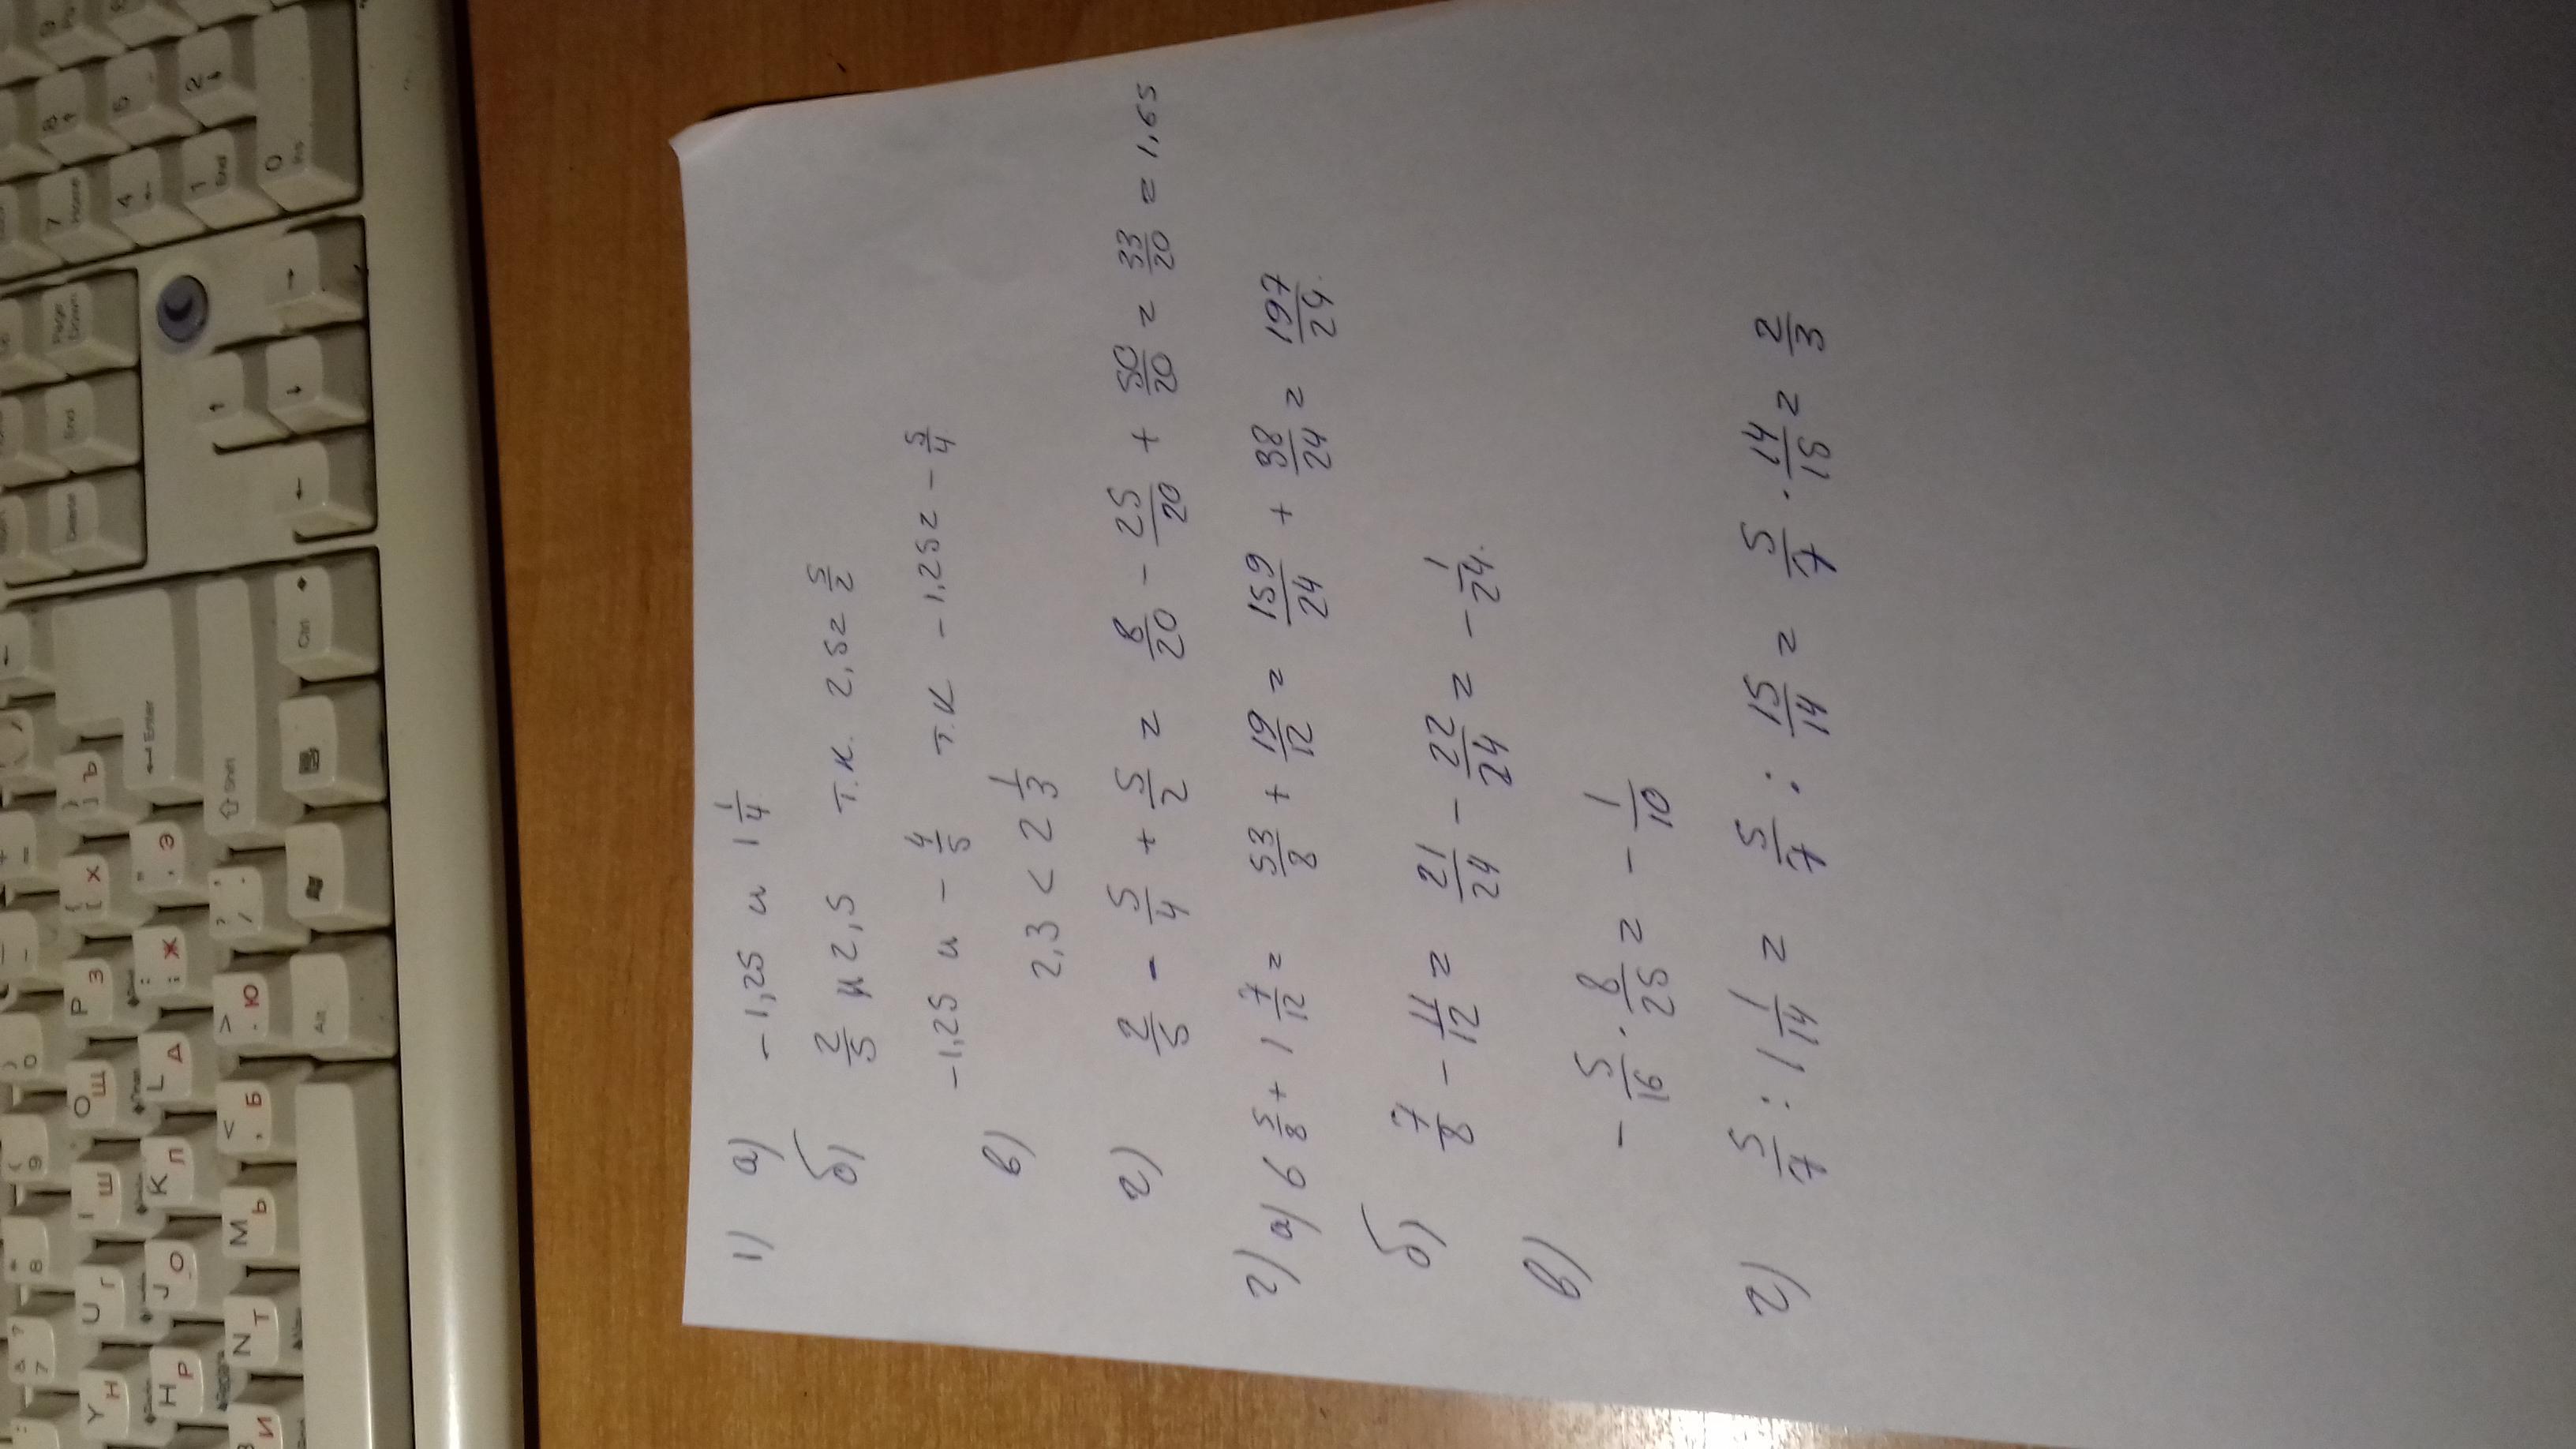 1) а) -1,25 и 1 1/4
б) 2/5 и 2,5 т.к. 2,5 = 5/2
-1,25 и -4/5 т.к -1,25 = -5/4
в) 2,3 < 2 1/3
г) 2/5 - 5/4 + 5/2 = 8/20 - 25/20 + 50/20 = 33/20 = 1,65
2) а) 6 5/8 + 1 7/12 = 53/8 + 19/12 = 159/24 + 38/24 = 197/24.
б) 7/8 - 11/12 = 21/24 - 22/24 = - 1/24.
в) - 5/16 · 8/25 = - 1/10
г) 5/7 : 1 1/14 = 5/7 : 15/14 = 5/7 · 14/15 = 2/3